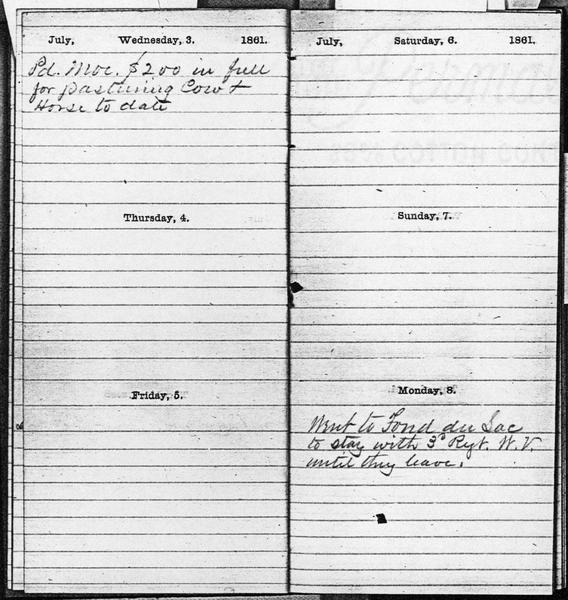 July, Wednesday, 3. 1861.
Pd. Moc. $2.00 in full
for pasturing Cow &
Horse to date
Thursday, 4.
Friday, 5.
July, Saturday, 6. 1861.
Sunday, 7.
Monday, 8.
Went to Fond du Lac
to stay with 3d Rgt. W. V.
until they leave.